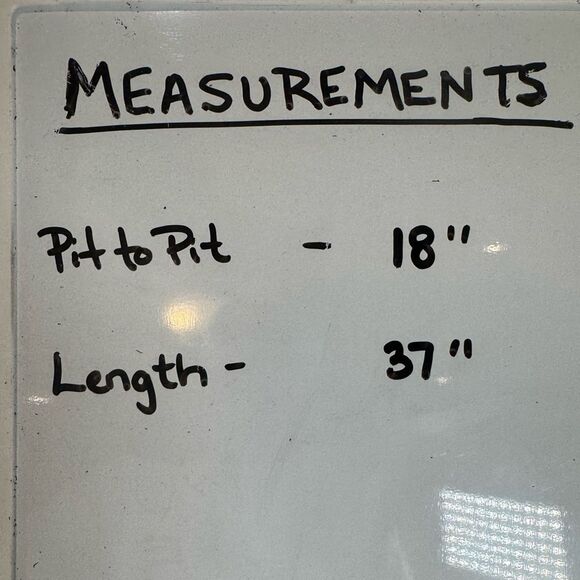 MEASUREMENTS
Pit to Pit - 18"
Length - 37"